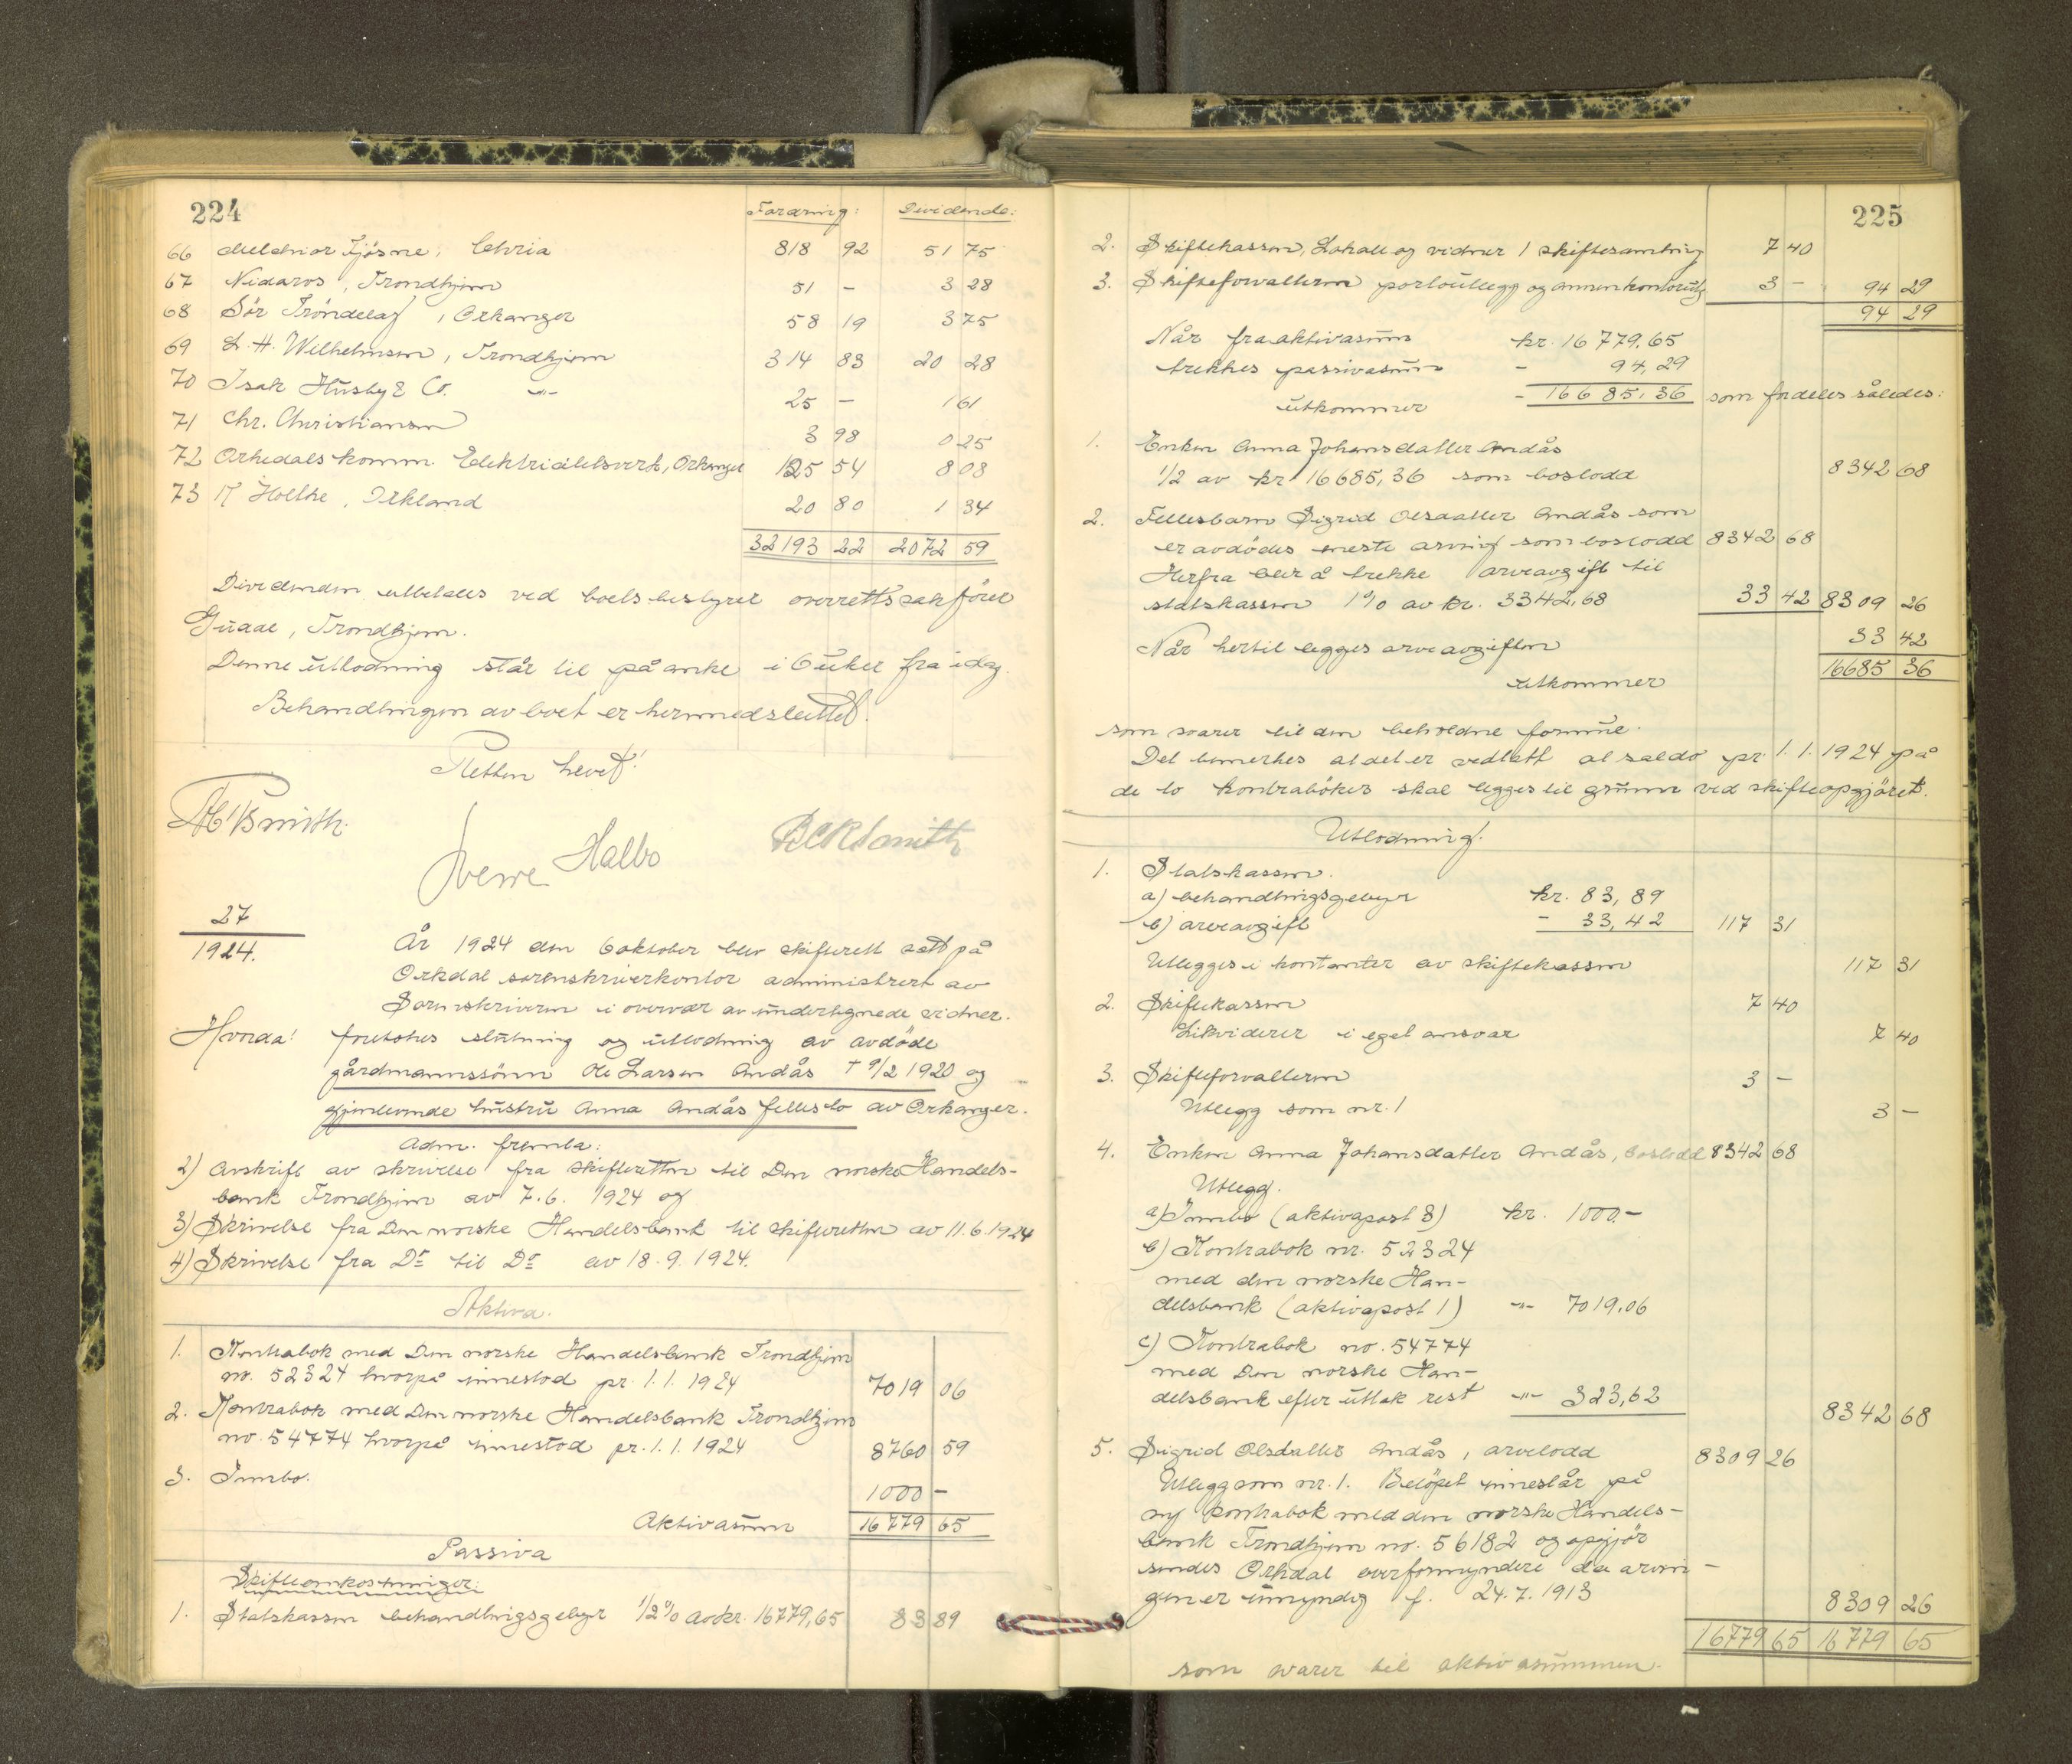 224
Fordring: Dividende:
66 Melchior Fjösne, Chria 818 92 51 75
67 Nidaros, Trondhjem 51 - 3 28
68 Sör Tröndelag, Orkanger 58 19 3 75
69 L. H. Wilhelmsen, Trondhjem 314 83 20 28
70 Isak Husby & Co. -"- 25 - 1 61
71 Chr. Christiansen 3 98 0 25
72 Orkedals komm. Elektricitetsverk, Orkanger 125 54 8 08
73 Holthe, Orkland 20 80 1 34
32193 22 2072 59
Dividenden utbetales ved boets bestyrer overrettssakförer
Guaal, Trondhjem.
Denne utlodning står til påanke i 6 uker fra idag.
Behandlingen av boet er hermed sluttet.
Retten hevet!
Smith.
Sverre Halbo
Smith
27
1924.
År 1924 den 6 oktober blev skifterett satt på
Orkdal sorenskriverkontor administrert av
Sorenskriveren i overvær av undertegnede vidner.
Hvorda! foretokes slutning og utlodning av avdöde
gårdmannssönn Ole Larsen Andås † 9/2 1920 og
gjenlevende hustru Anna Andås fellesbo av Orkanger.
Adm. fremla:
2) Avskrift av skrivelse fra skifteretten til Den norske Handels-
bank Trondhjem av 7.6. 1924 og
3) Skrivelse fra Den norske Handelsbank til skifteretten av 11.6.1924
4) Skrivelse fra Do til Do av 18.9.1924.
Aktiva.
1. Kontrabok med Den norske Handelsbank Trondhjem
nr. 52324 hvorpå innestod pr. 1.1. 1924 7019 06
2. Kontrabok med Den norske Handelsbank Trondhjem
no. 54774 hvorpå innestod pr. 1.1. 1924 8760 59
3. Innbo. 1000 -
Aktivasum 16779 65
Passiva
Skifteomkostninger:
1. Statskassen behandlingsgebyr 1/2 % av kr. 16779,65 83 89
225
2. Skiftekassen, Lokale og vidner 1 skiftesamling 7 40
3. Skifteforvalteren portoutlegg og annen kontorutg 3 - 94 29
94 29
Når fra aktivasum kr. 16779,65
trekkes passivasum - 94,29
utkommer - 16685,36 som fordeles således:
1. Enken Anna Johansdatter Andås
1/2 av kr 16685,36 som boslodd 8342 68
2. Fellesbarn Sigrid Olsdatter Andås som
er avdödes eneste arving som boslodd 8342 68
Herfra blir å trekke arveavgift til
statskassen 1% av kr. 3342,68 33 42 8309 26
Når hertil legges arveavgiften 33 42
utkommer 16685 36
som svarer til den beholdne formue.
Det bemerkes at det er vedtatt at saldo pr 1.1.1924 på
de to kontraböker skal legges til grunn ved skifteopgjöret.
Utlodning.
1. Statskassen.
a) behandlingsgebyr kr. 83,89
b) arveavgift - 33,42 117 31
Utlegges i kontanter av skiftekassen 117 31
2. Skiftekassen 7 40
Likviderer i eget ansvar 7 40
3. Skifteforvalteren 3 -
Utlegg som nr. 1 3 -
4. Enken Anna Johansdatter Andås, boslodd 8342 68
Utlegg.
a) Innbo (aktivapost 3) kr. 1000.-
b) Kontrabok nr. 52324
med den norske Han-
delsbank (aktivapost 1) -"- 7019,06
c) Kontrabok no. 54774
med Den norske Han-
delsbank efter uttak rest -"- 323,62 8342 68
5. Sigrid Olsdatter Andås, arvelodd 8309 26
Utlegg som nr. 1. Belöpet innestår på
ny kontrabok med den norske Handels-
bank Trondhjem no. 56182 og opgjör
sendes Orkdal overformynderi da arvin-
gen er umyndig f. 24.7.1913 8309 26
16779 65 16779 65
som svarer til aktivasummen.